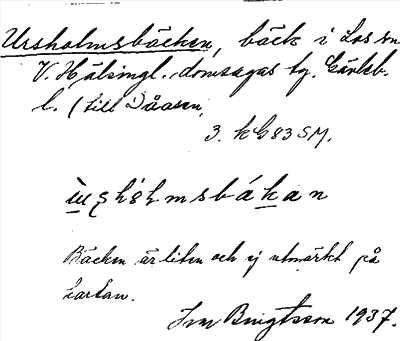 Ursholmsbäcken, bäck i Los sn
V. Hälsingl. domsagas tg. Gävleb.
l. (till Dåasen,
3. kG83SM.
Bäcken är liten och ej utmärkt på
kartan.
Bengtsson 1937.